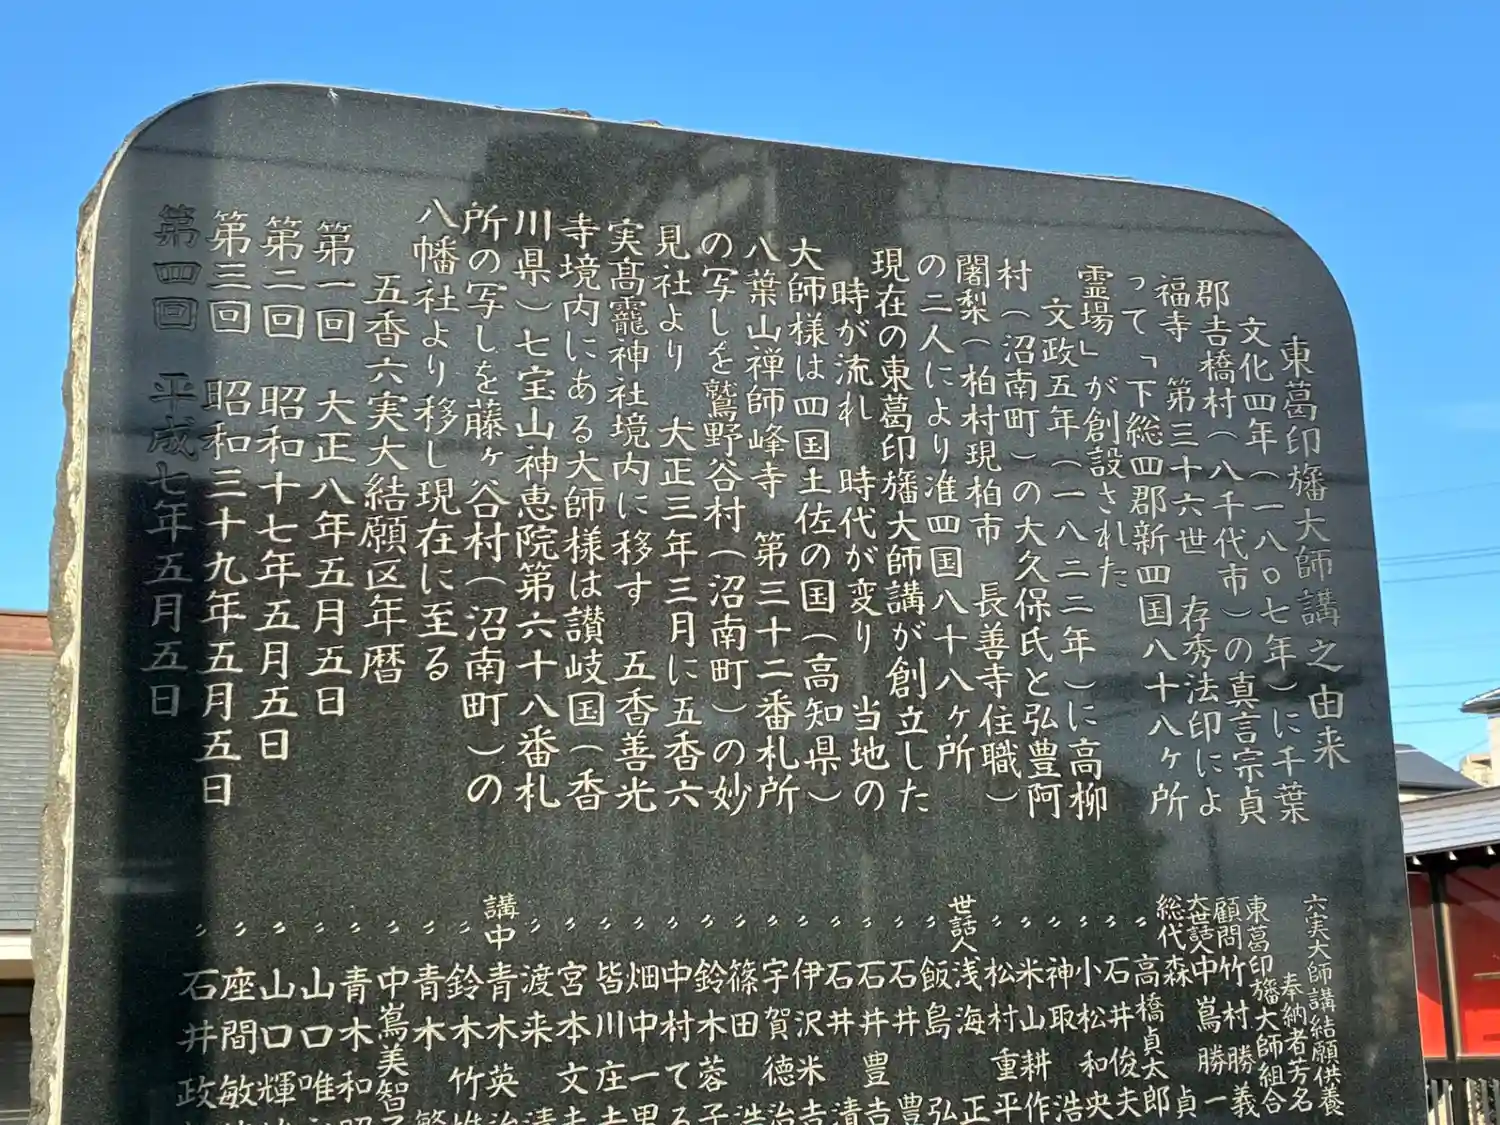 東葛印旛大師講之由来
文化四年(一八〇七年)に千葉
郡吉橋村(八千代市)の真言宗貞
福寺 第三十六世 存秀法印によ
って「下総四郡新四国八十八ヶ所
霊場」が創設された
文政五年(一八二二年)に高柳
村(沼南町)の大久保氏と弘豊阿
闍梨(柏村現柏市 長善寺住職)
の二人により准四国八十八ヶ所
現在の東葛印旛大師講が創立した
時が流れ 時代が変り 当地の
大師様は四国土佐の国(高知県)
八葉山禅師峰寺 第三十二番札所
の写しを鷲野谷村(沼南町)の妙
見社より 大正三年三月に五香六
実高靇神社境内に移す 五香善光
寺境内にある大師様は讃岐国(香
川県)七宝山神恵院第六十八番札
所の写しを藤ヶ谷村(沼南町)の
八幡社より移し現在に至る
五香六実大結願区年暦
第一回 大正八年五月五日
第二回 昭和十七年五月五日
第三回 昭和三十九年五月五日
第四回 平成七年五月五日
六実大師講結願供養
奉納者芳名
東葛印旛大師組合
顧問 竹村勝義
大世話人 中嶌勝一
総代 森 貞
〃 高橋貞太郎
〃 石井俊夫
〃 小松和央
〃 神取 浩
〃 米山耕作
〃 松村重平
世話人 浅海 正
〃 飯島 弘
〃 石井 豊
〃 石井豊吉
〃 石井 清
〃 伊沢米吉
〃 宇賀徳治
〃 篠田 浩
〃 鈴木蓉子
〃 中村てる
〃 畑中一男
〃 皆川庄
〃 宮本文
〃 渡来 清
講中 青木英治
〃 鈴木竹
〃 青木 繁
〃 中嶌美智子
〃 青木和昭
〃 山口唯
〃 山口輝
〃 座間敏
〃 石井政